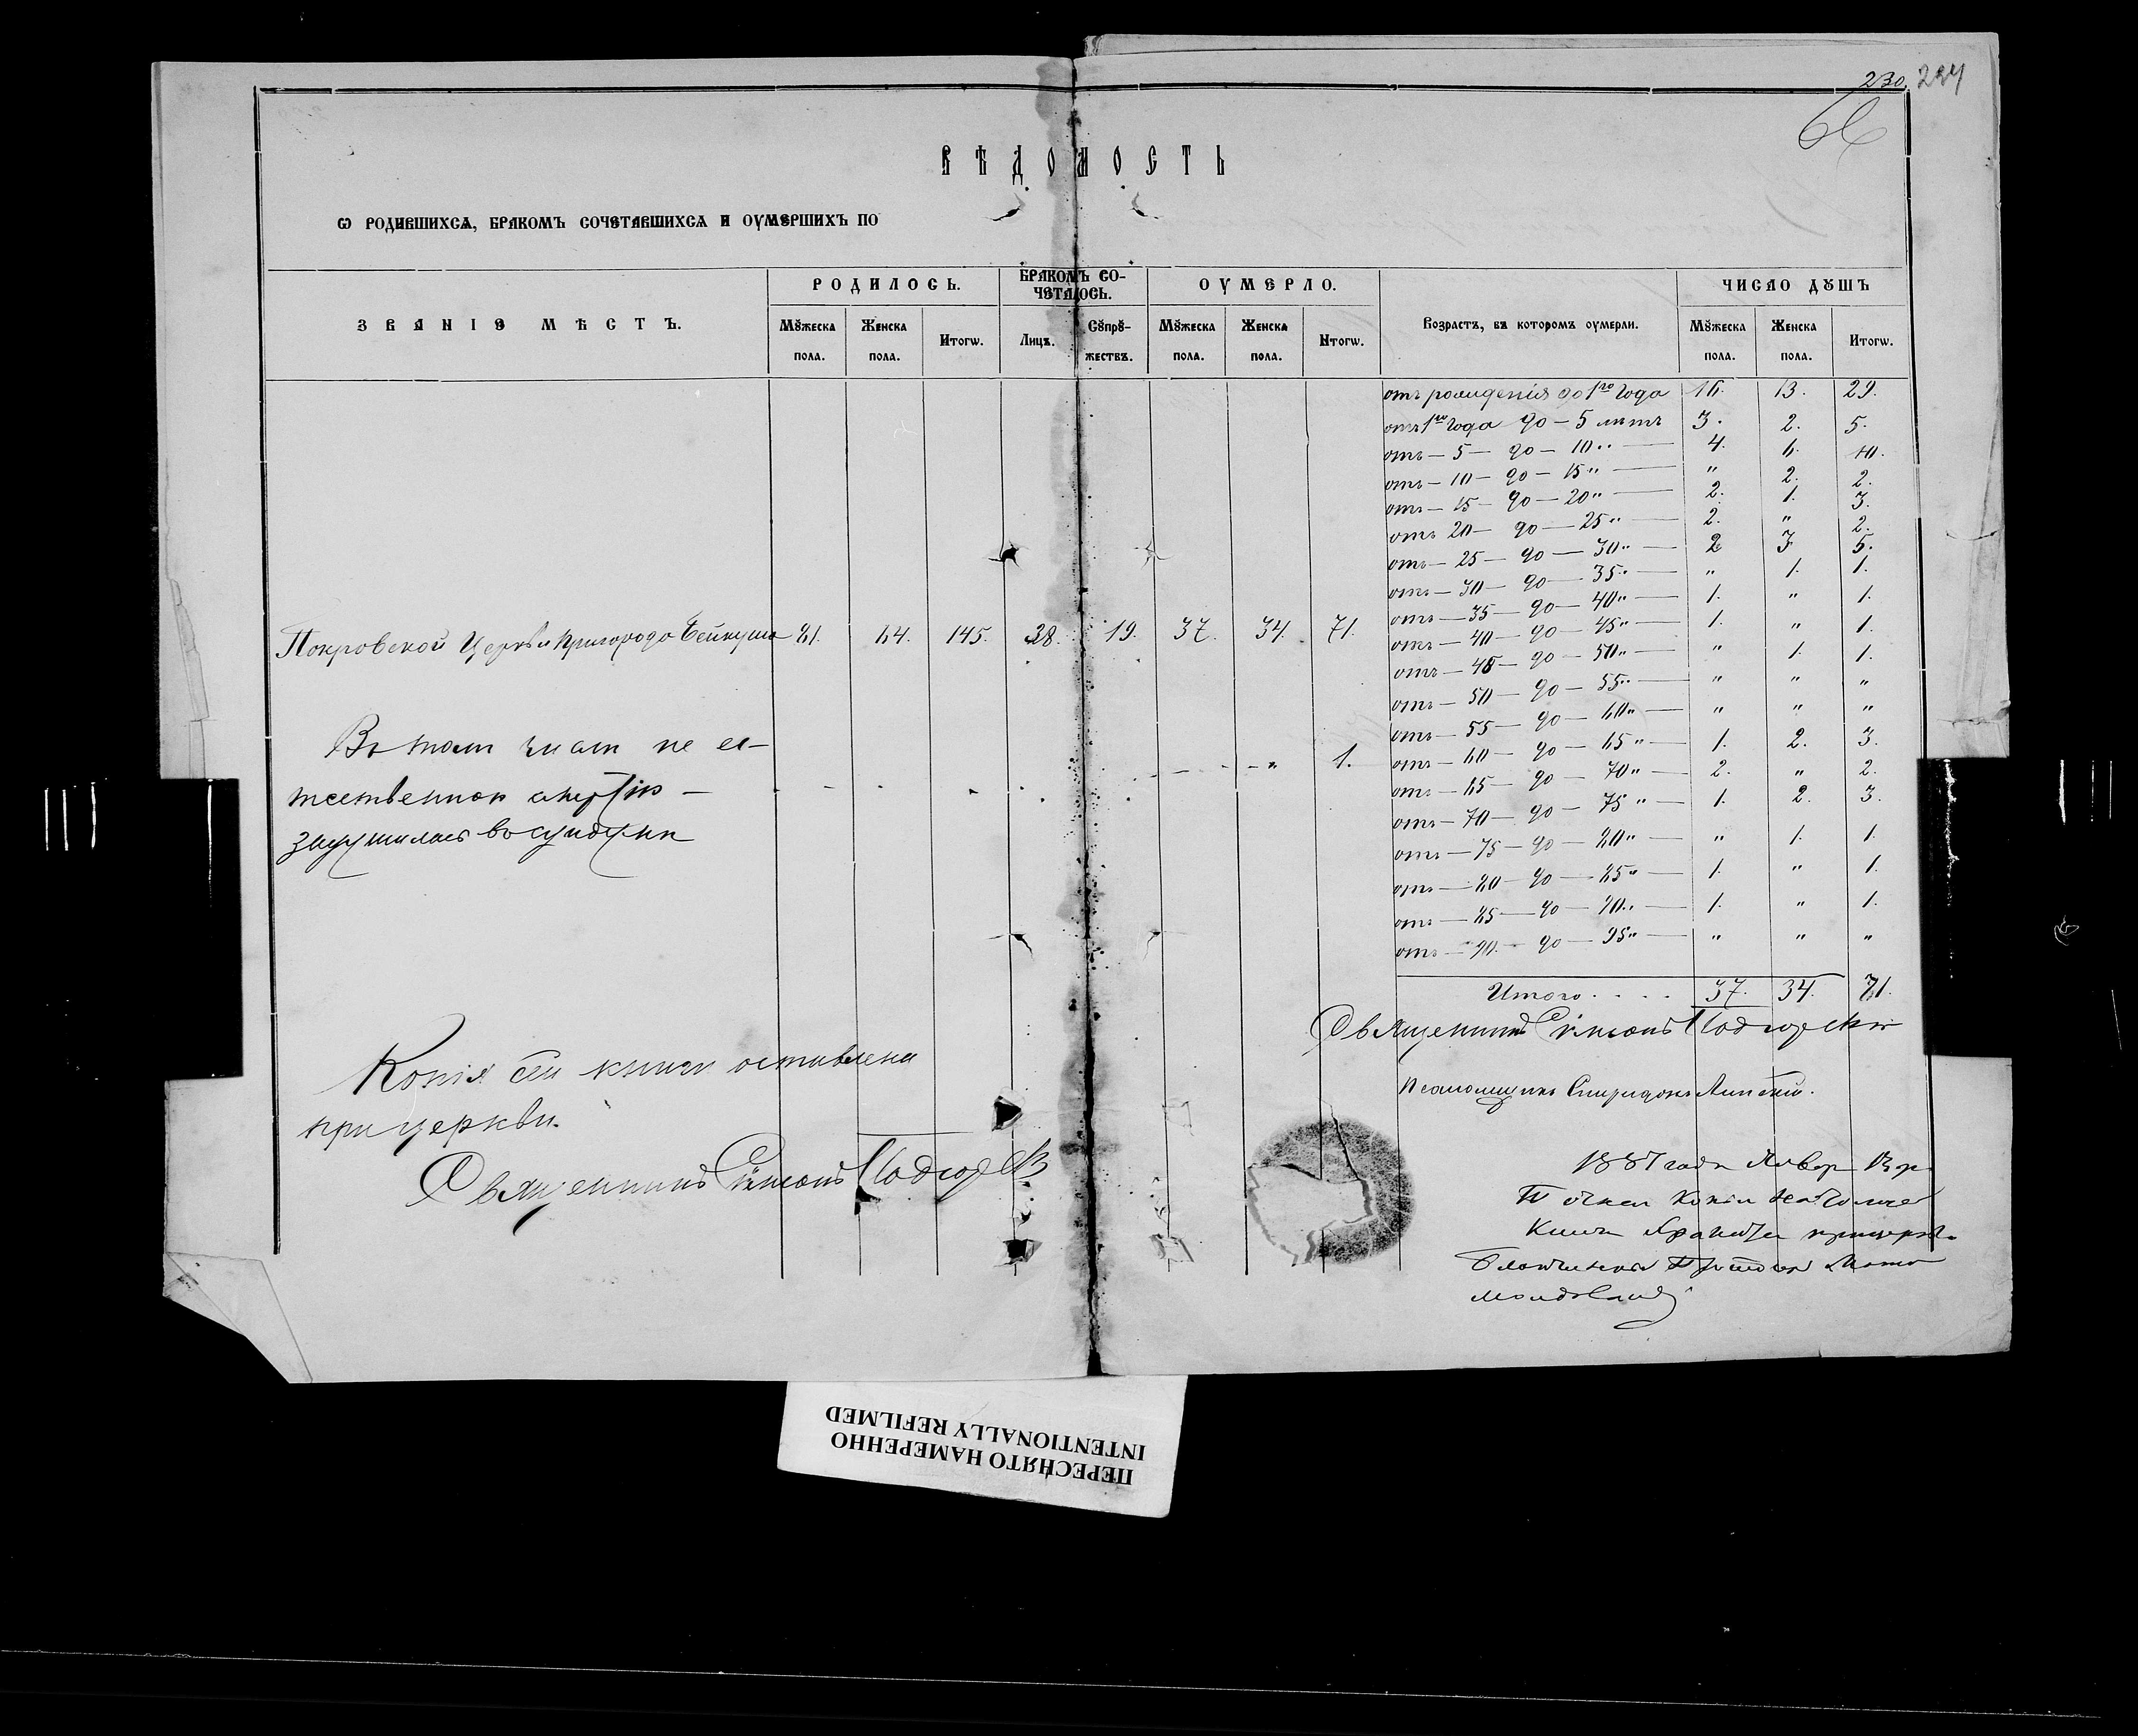 230. 234
66
ВѢДОМОСТЬ
Ѡ РОДИВШИХСѦ, БРАКОМЪ СОЧЕТАВШИХСѦ И ОУМЕРШИХЪ ПО
ЗВАНІЕ МѢСТЪ.
РОДИЛОСЬ.
Мꙋжеска пола.
Женска пола.
Итогѡ.
БРАКОМЪ СО-
ЧЕТАЛОСЬ.
Лицъ.
Сꙋпрꙋ-
жествъ.
ОУМЕРЛО.
Мꙋжеска пола.
Женска пола.
Итогѡ.
Возрастъ, въ которомъ оумерли.
ЧИСЛО ДꙊШЪ
Мꙋжеска пола.
Женска пола.
Итогѡ.
отъ рожденія до 1го года 16. 13. 29.
отъ 1го года до — 5 лѣтъ 3. 2. 5.
отъ — 5 — до — 10 „ — 4. 6. 10.
отъ — 10 — до — 15 „ — „ 2. 2.
отъ — 15 — до — 20 „ — 2. 1. 3.
отъ 20 — до — 25 „ — 2. „ 2.
отъ — 25 — до — 30 „ — 2 3 5.
отъ — 30 — до — 35 „ — „ 1. 1.
отъ — 35 — до — 40 „ — 1. „ 1.
отъ — 40 — до — 45 „ — 1. „ 1.
отъ — 45 — до — 50 „ — „ 1. 1.
отъ — 50 — до — 55 „ — „ „ „
отъ — 55 — до — 60 „ — „ „ „
отъ — 60 — до — 65 „ — 1. 2. 3.
отъ — 65 — до — 70 „ — 2. „ 2.
отъ — 70 — до — 75 „ — 1. 2. 3.
отъ — 75 — до — 80 „ — „ 1. 1.
отъ — 80 — до — 85 „ — 1. „ 1.
отъ — 85 — до — 90 „ — 1. „ 1.
отъ — 90 — до — 95 „ — „ „ „
Итого . . . . 37. 34. 71.
Покровской Церкви Пригорода Бейкуша 81. 64. 145. 38. 19. 37. 34. 71.
Въ томъ числѣ не ес-
тественною смертію — „ 1.
задушилась въ сундукѣ
Копія сей книги оставлена
при церкви.
Священникъ Симеонъ Подгорскій
Священникъ Симеонъ Подгорскій
Псаломщикъ Спиридонъ Липскій.
1887 года Январ
копіи
Книги при церкви
ПЕРЕСНЯТО НАМЕРЕННО
INTENTIONALLY REFILMED